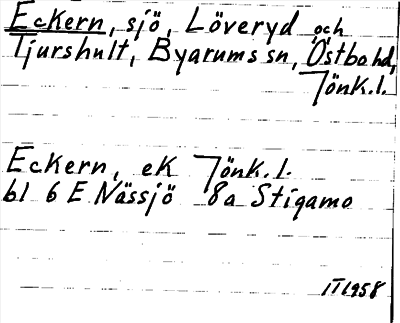 Eckern, sjö, Löveryd och
Tjurshult, Byarums sn, Östbo hd,
Jönk.l.
Eckern, ek Jönk.l.
bl 6 E Nässjö 8a Stigamo
IT1958